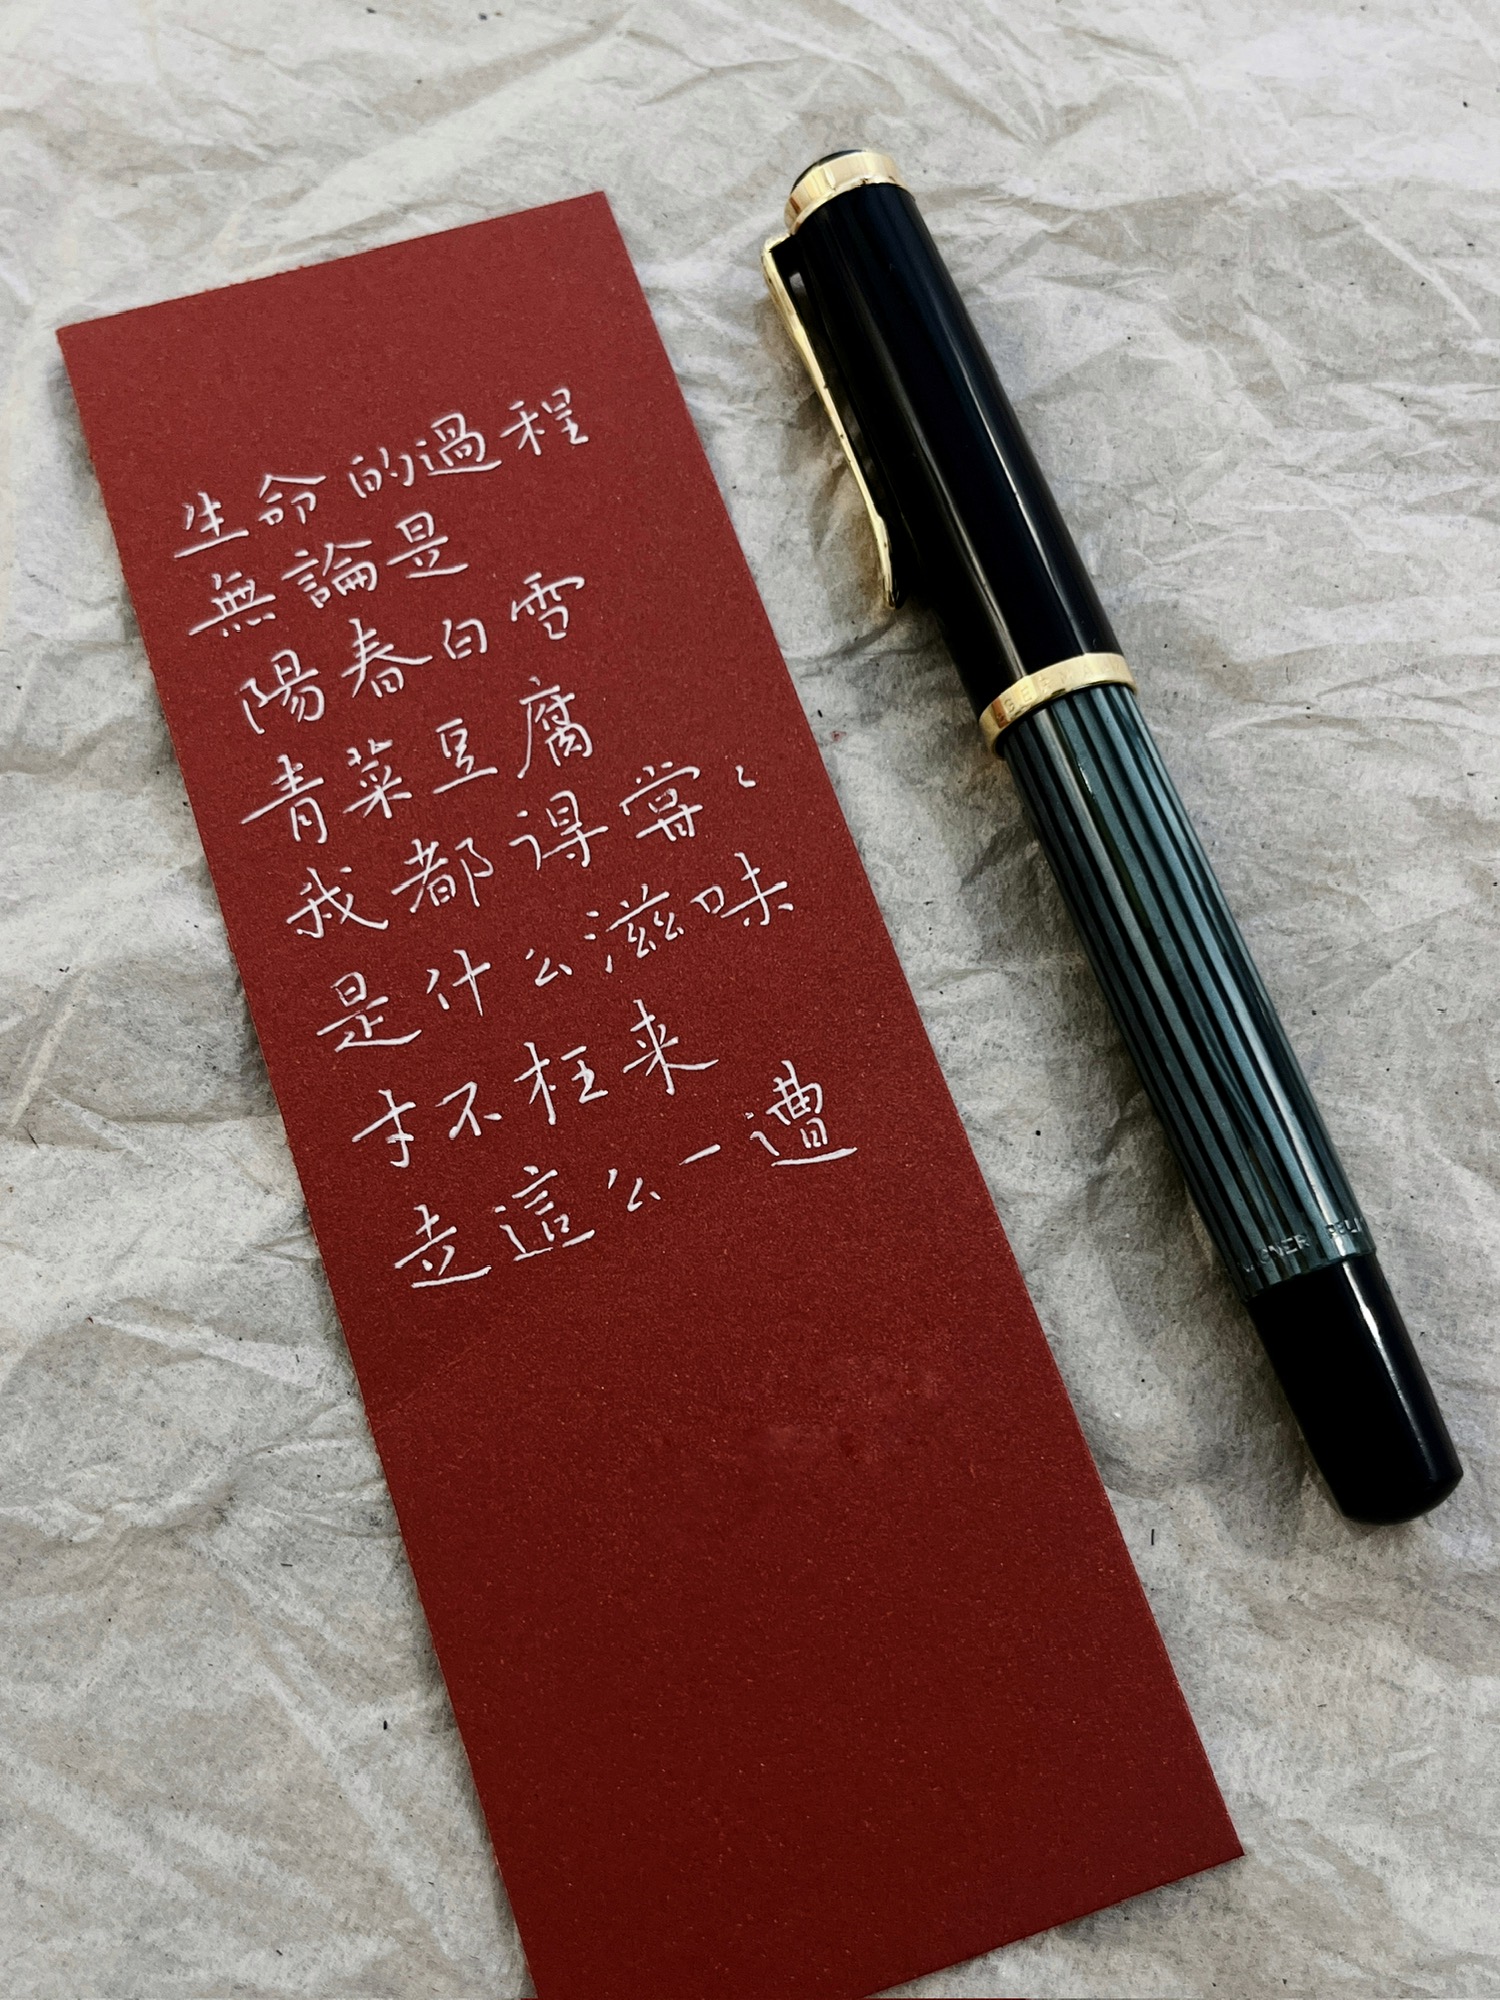 生命的過程
無論是
陽春白雪
青菜豆腐
我都得嘗々
是什么滋味
才不枉来
走這么一遭